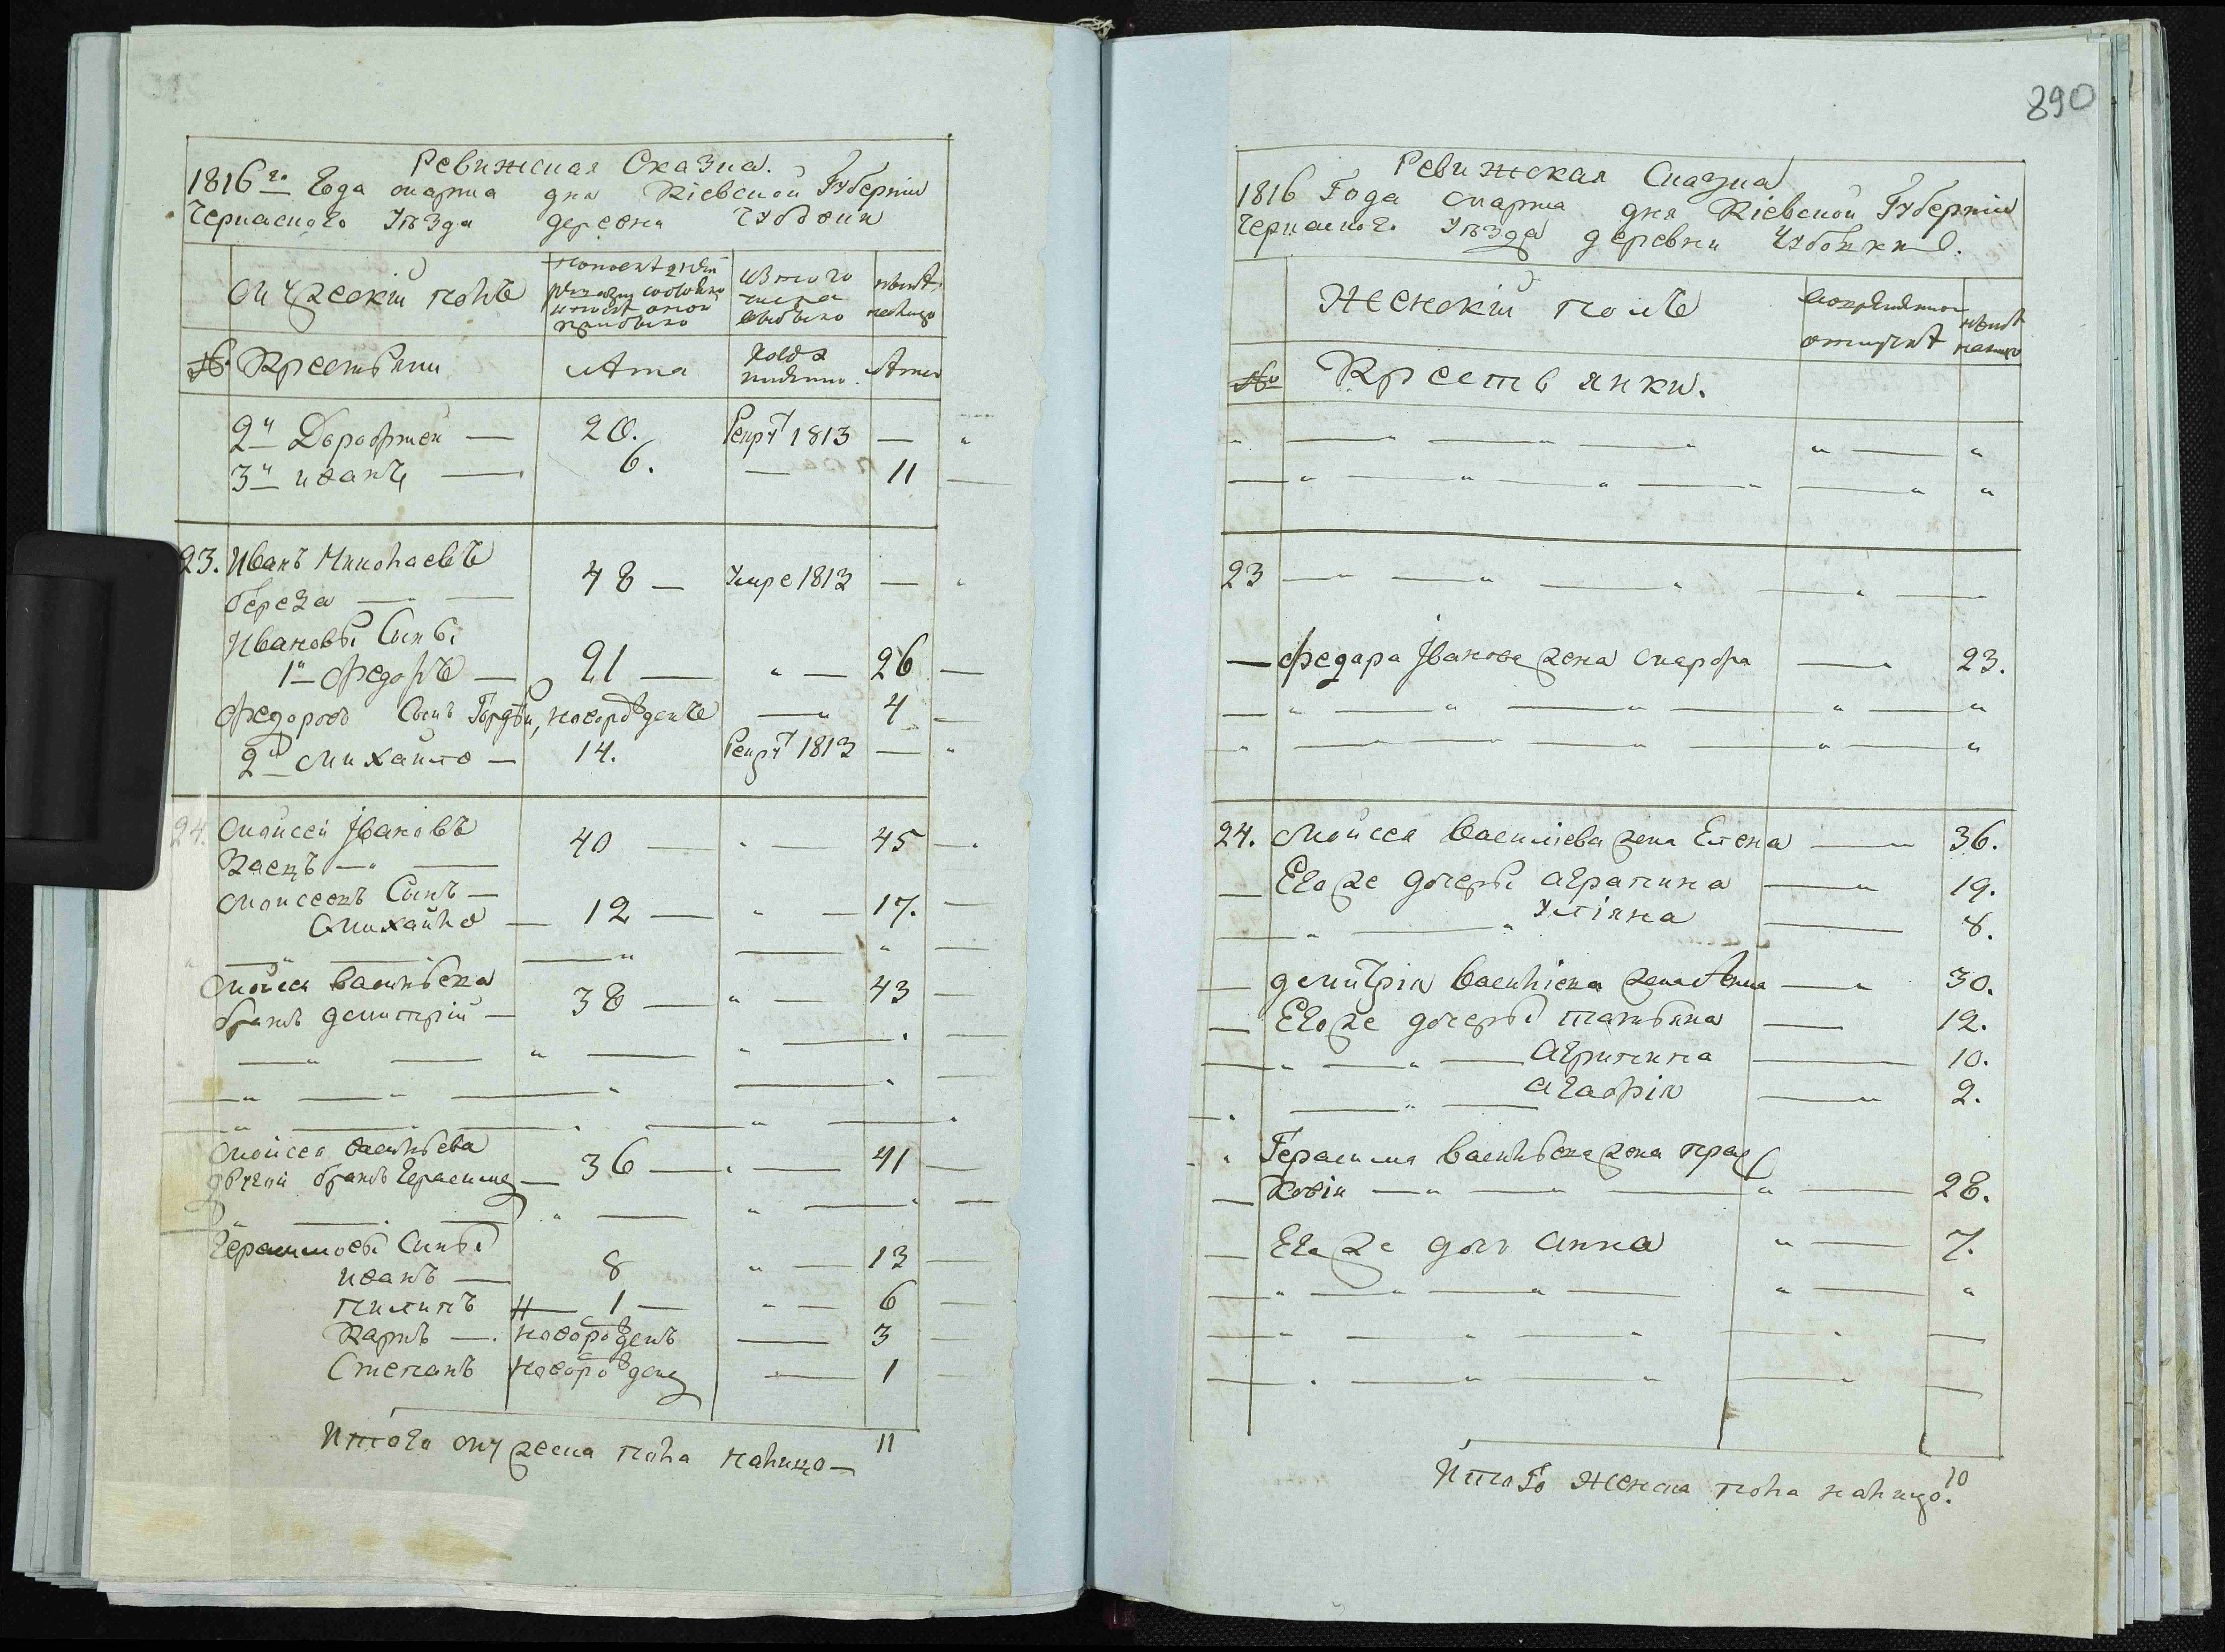 Ревижская Сказка.
1816го Года марта дня Кіевской Губерніи
Черкаского Уѣзда деревни Чубовки
Мужескій полъ
По послѣдней ревизіи состояло и послѣ оной прибыло
Изъ того числа выбыло
нынѣ налицо
№ Крестьяни Лѣта Когда имянно. Лѣта
2й Дорофтей — 20. Рекру 1813 —
3й иванъ — 6. — 11
23. Иванъ Николаевъ
береза — 48 — Умре 1813 —
Ивановы Сыны
1й Федоръ — 21 — " — 26 —
Федоровъ Сынъ Гордѣй, новорожденъ — " 4 —
2й Михайло — 14. Рекру 1813 — "
24. Мойсей Івановъ 40 — " — 45 —
Заецъ — " —
Мойсеевъ Сынъ —
Михайло — 12 — " — 17. —
Мойсея Васильева
братъ демитрій — 38 — " — 43 —
Мойсея Васильева
другой братъ Герасимъ — 36 — " — 41 —
Герасимовы Сыны
иванъ — 8 " — 13 —
пилипъ — 1 — " — 6 —
Карпъ — новорожденъ — 3 —
Степанъ новорожденъ — 1 —
Итого мужеска пола налицо — 11
890
Ревижская Сказка
1816 Года марта дня Кіевской Губерніи
Черкаского Уѣзда деревни Чубовки.
Женскій полъ
во временной отлучкѣ
нынѣ налицо
№ Крестьянки.
23 — " — " — "
— Федара Іванова жена Марфа — " 23.
24. Мойсея Василіева жена Елена — 36.
— Его же дочеры Аграпина — " 19.
— " — " Уліяна — 8.
— демитрія Василіева жена Анна — " 30.
— Его же дочеры татьяна — 12.
— " — " — Агрипина — 10.
— " — Агафія — " 2.
" Герасима Васильева жена прас
— ковія — " — " — " — 28.
— Его же дочь Анна " — 7.
Итого женска пола налицо. 10